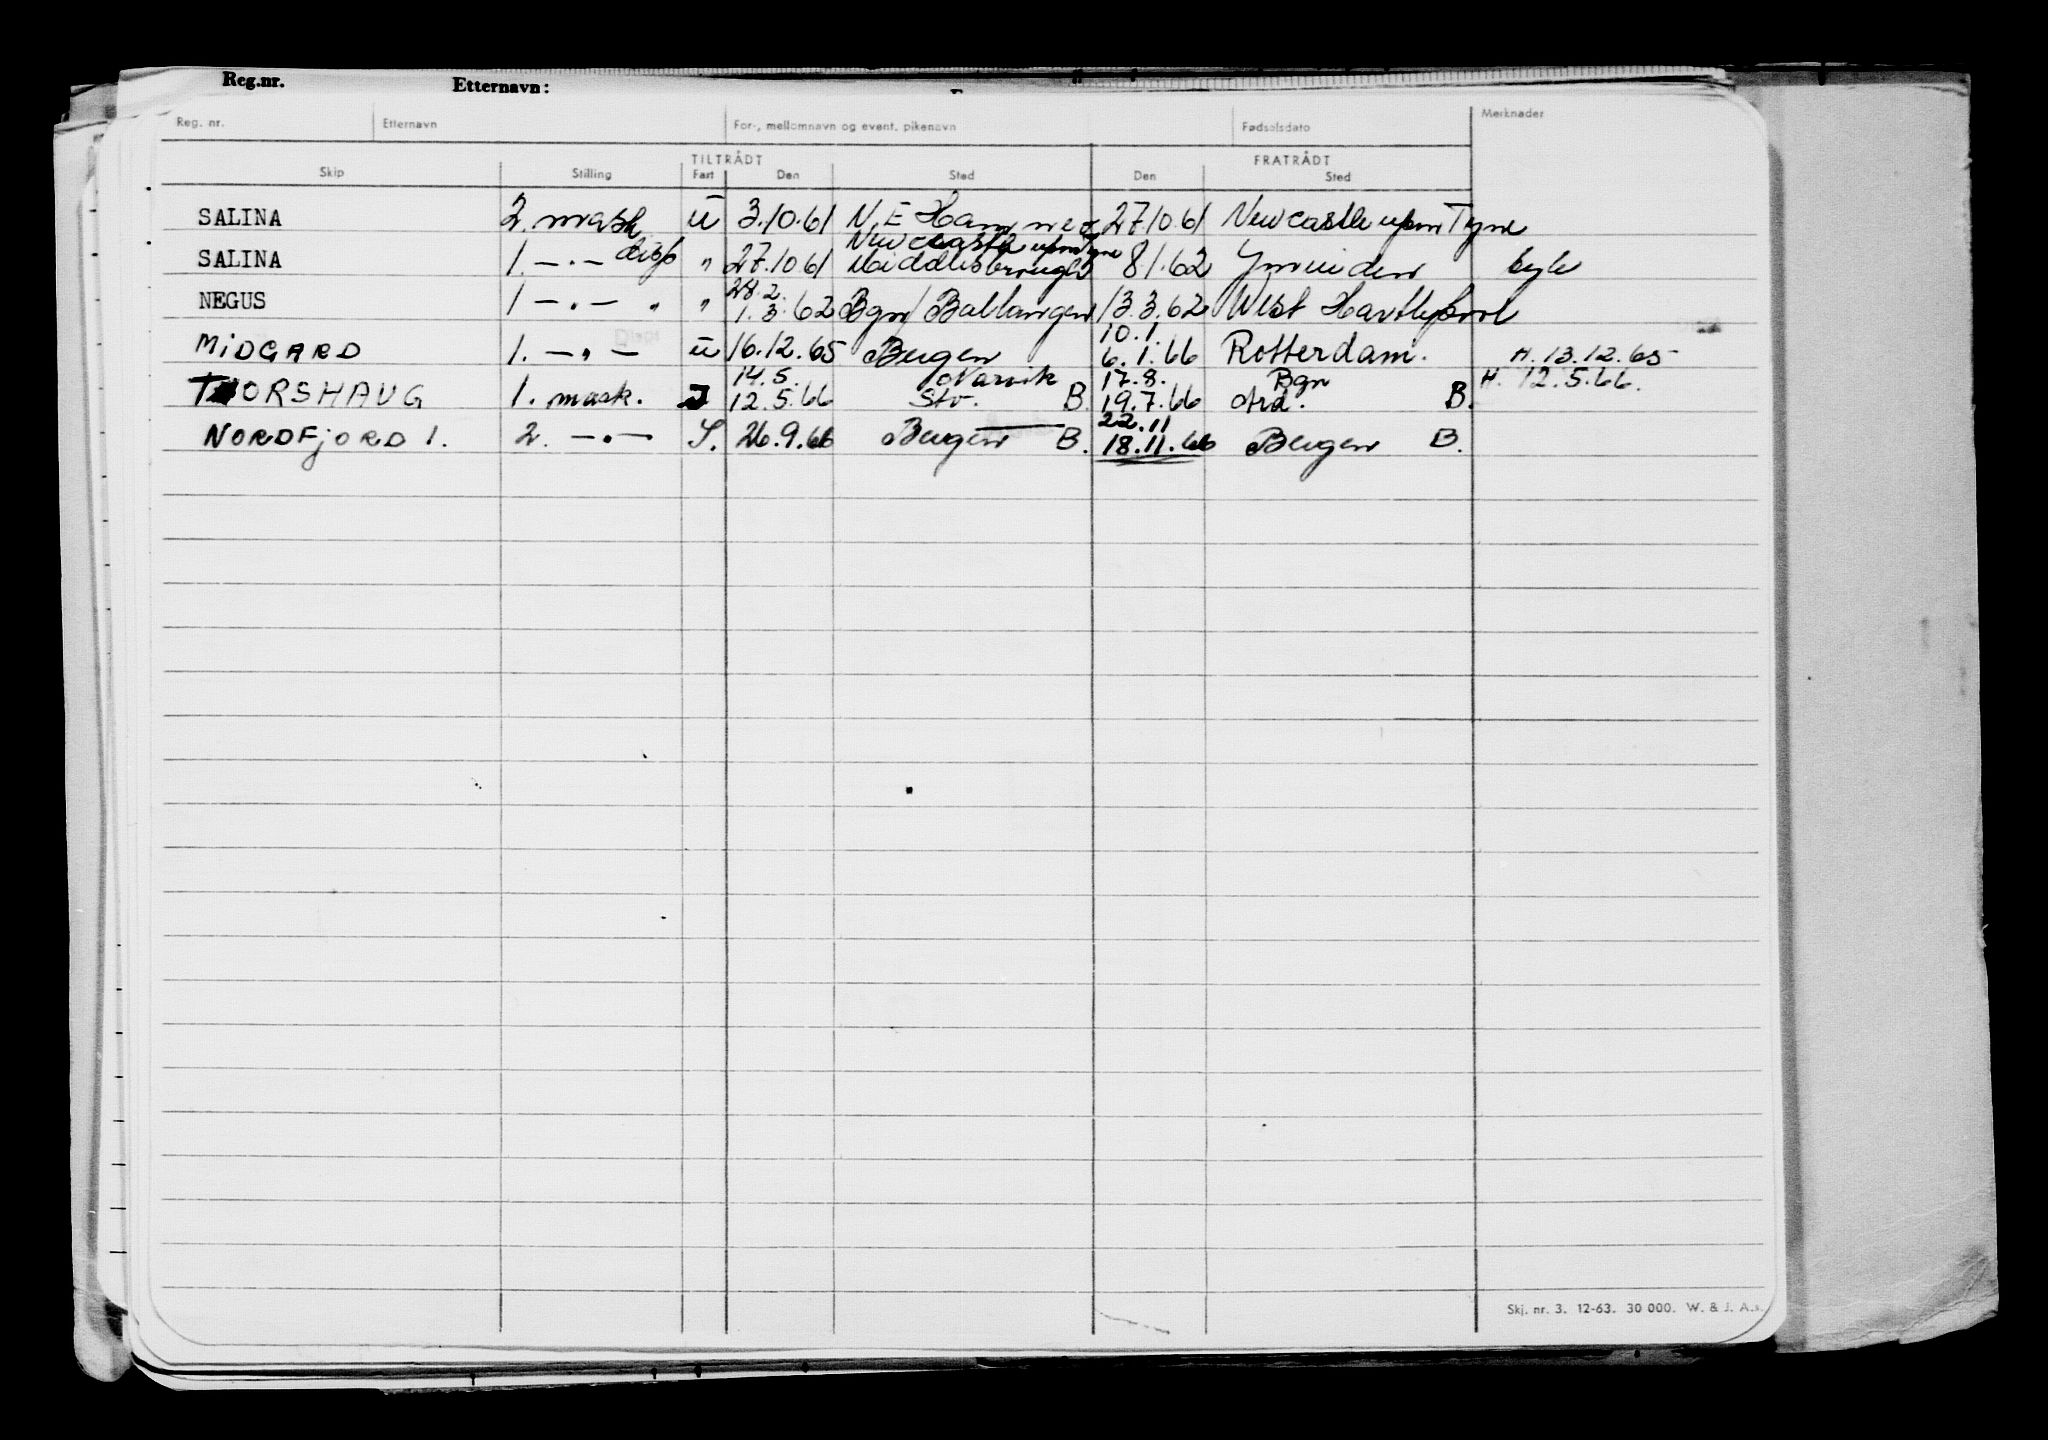 Reg.nr. Etternavn:
Reg. nr. Etternavn For-, mellomnavn og event. pikenavn Fødselsdato Merknader
TILTRÅDT FRATRÅDT
Skip Stilling Fart Den Sted Den Sted
SALINA 2. mask u 3.10.61 N.E Hammer 27.10.61 Newcastle upon Tyne
Newcastle upon Tyne
SALINA 1. —·— disp " 27.10 61 Middlesbrough 8/1.62 Ymuiden syk
28.2.
NEGUS 1 —·— " " 1.3.62 Bgn/Ballangen 13.3.62 West Hartlepool
10.1.
MiDGARD 1. —·— u 16.12.65 Bergen 6.1.66 Rotterdam. H. 13.12.65
14.5. Narvik 17.8. Bgn H. 12.5.66.
THORSHAUG 1. mask. J 12.5.66 Stv. B. 19.7.66 Ard. B.
22.11
NORDFjORD 1. 2. —·— S. 26.9.66 Bergen B. 18.11.66 Bergen B.
Skj. nr. 3. 12-63. 30 000. W. & J. A.s.